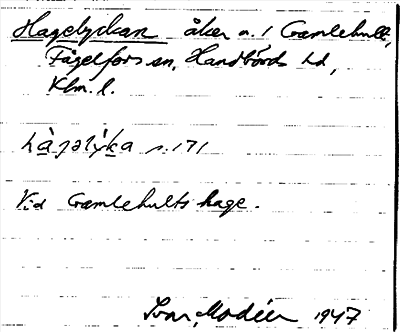 Hagelyckan åker n. 1 Gamlehult,
Fågelfors sn, Handbörds hd,
Klm. l.
hàgəlýka s. 171
Vid Gamlehults hage.
Ivar Modéer 1947